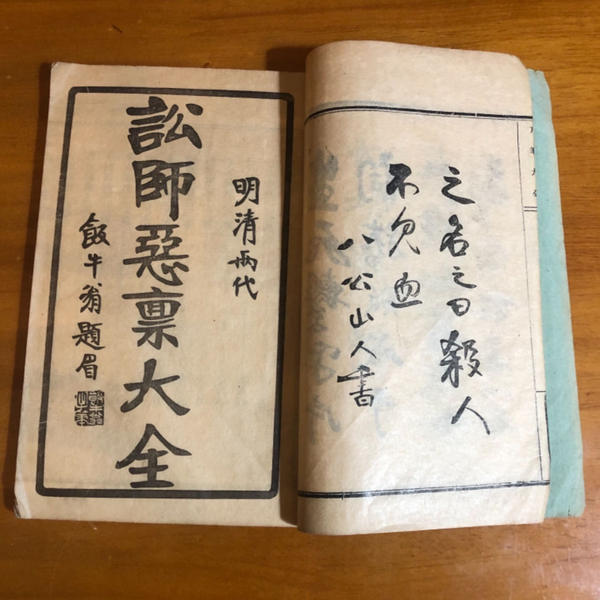 之名之曰殺人
不見血
八公山人書
明清兩代
訟師惡稟大全
飯牛翁題眉